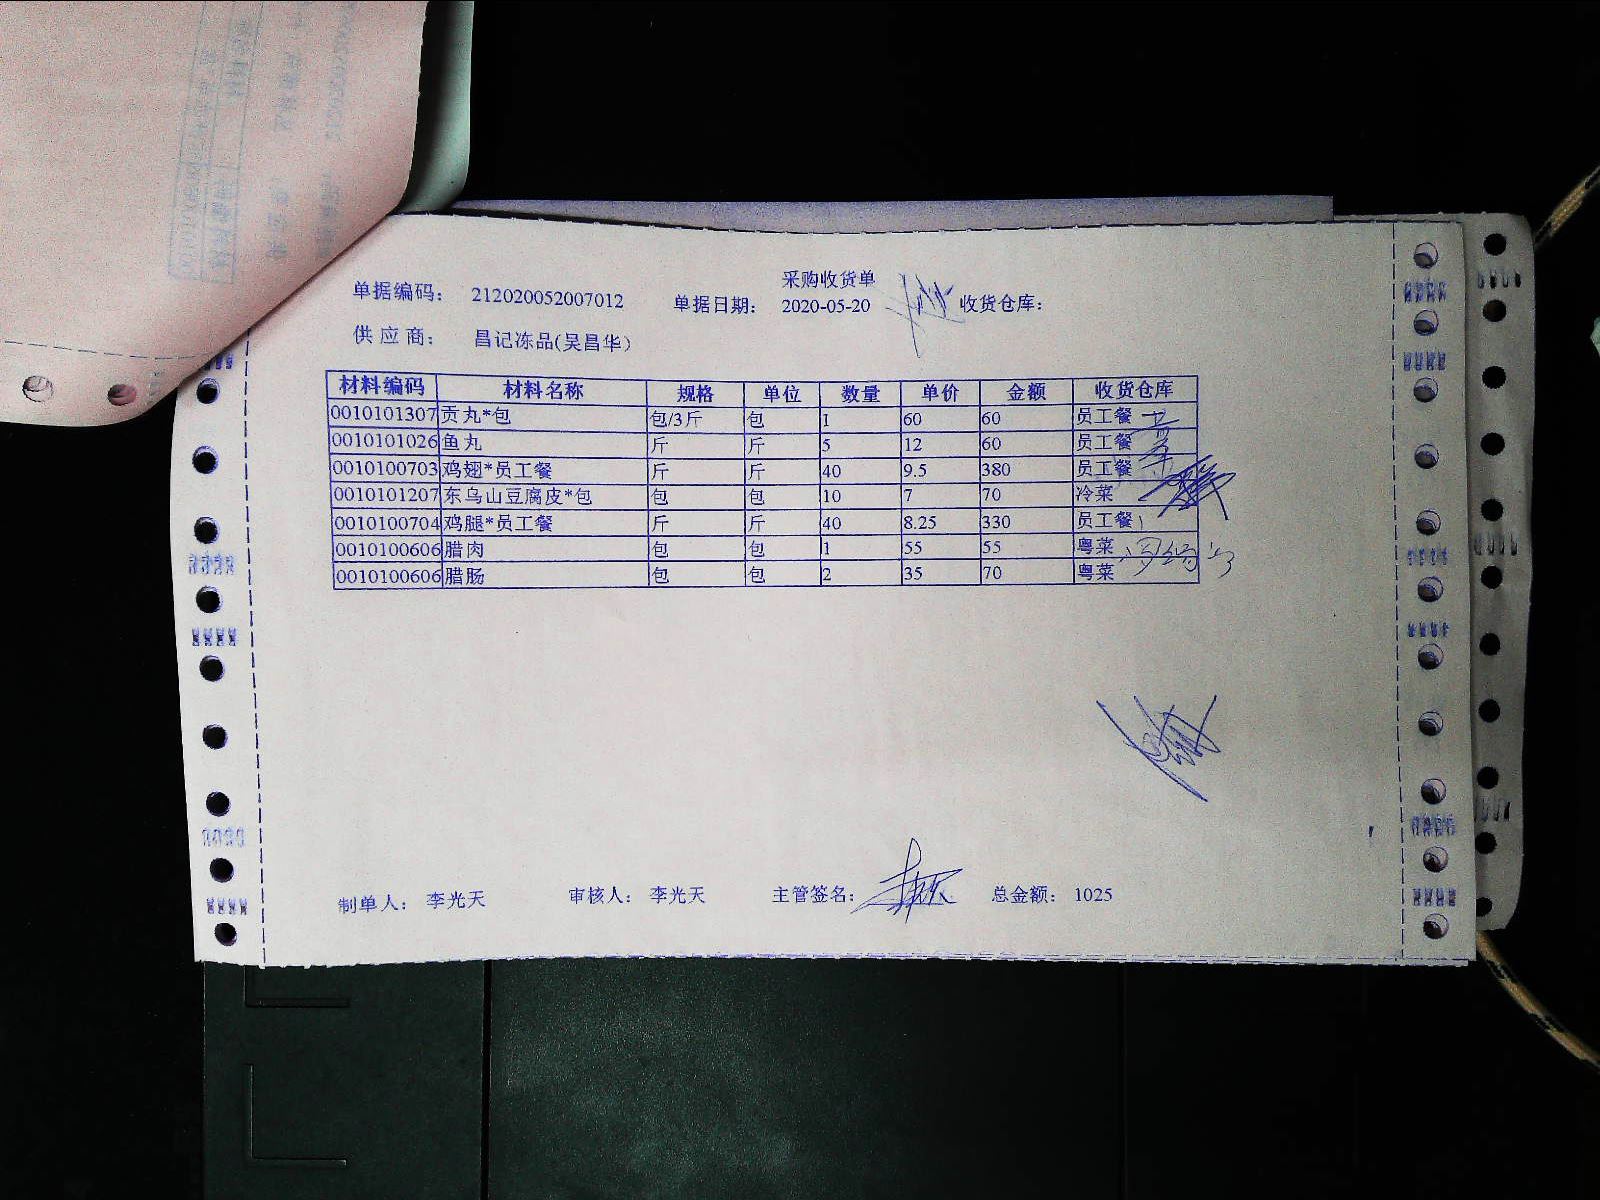 采购收货单
单据编码： 212020052007012 单据日期： 2020-05-20 收货仓库：
供 应 商： 昌记冻品(吴昌华)
材料编码 材料名称 规格 单位 数量 单价 金额 收货仓库
0010101307 贡丸*包 包/3斤 包 1 60 60 员工餐
0010101026 鱼丸 斤 斤 5 12 60 员工餐
0010100703 鸡翅*员工餐 斤 斤 40 9.5 380 员工餐
0010101207 东乌山豆腐皮*包 包 包 10 7 70 冷菜
0010100704 鸡腿*员工餐 斤 斤 40 8.25 330 员工餐
0010100606 腊肉 包 包 1 55 55 粤菜
0010100606 腊肠 包 包 2 35 70 粤菜
制单人： 李光天 审核人： 李光天 主管签名： 总金额： 1025